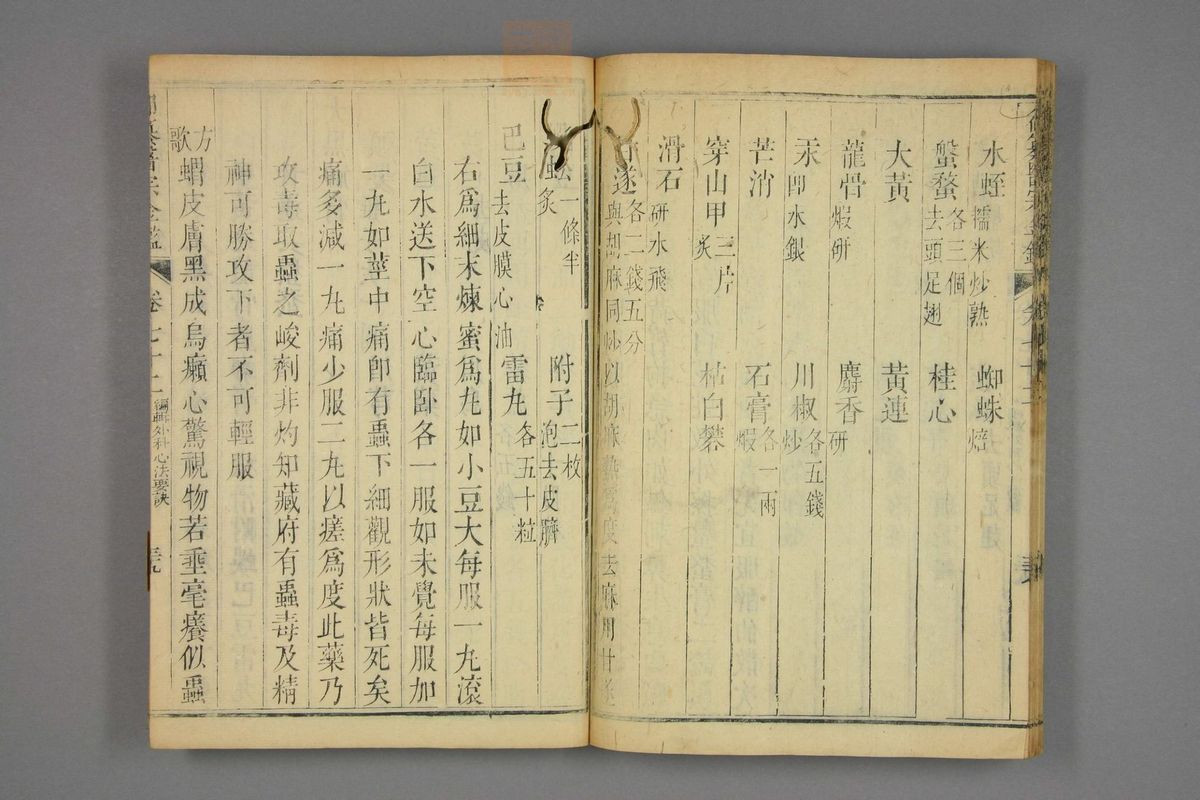 水蛭糯米炒熟 蜘蛛焙
盤蝥各三個去頭足翅 桂心
大黃 黃連
龍骨煆研 麝香研
汞卽水銀 川椒各五錢炒
芒消 石膏各一兩煆
穿山甲三片炙 枯白礬
滑石研水飛
遂各二錢五分與胡麻同炒以胡麻熟爲度去麻用
一條半炙 附子二枚泡去皮臍
巴豆去皮膜心油 雷丸各五十粒
右爲細末煉蜜爲丸如小豆大每服一丸滾
白水送下空心臨臥各一服如未覺每服加
一丸如莖中痛卽有蟲下細觀形狀皆死矣
痛多減一丸痛少服二丸以瘥爲度此藥乃
攻毒取蟲之峻劑非灼知藏府有蟲毒及精
神可勝攻下者不可輕服
方歌 蝟皮膚黑成烏癩心驚視物若垂毫癢似蟲
卷七十三 編輯外科心法要訣